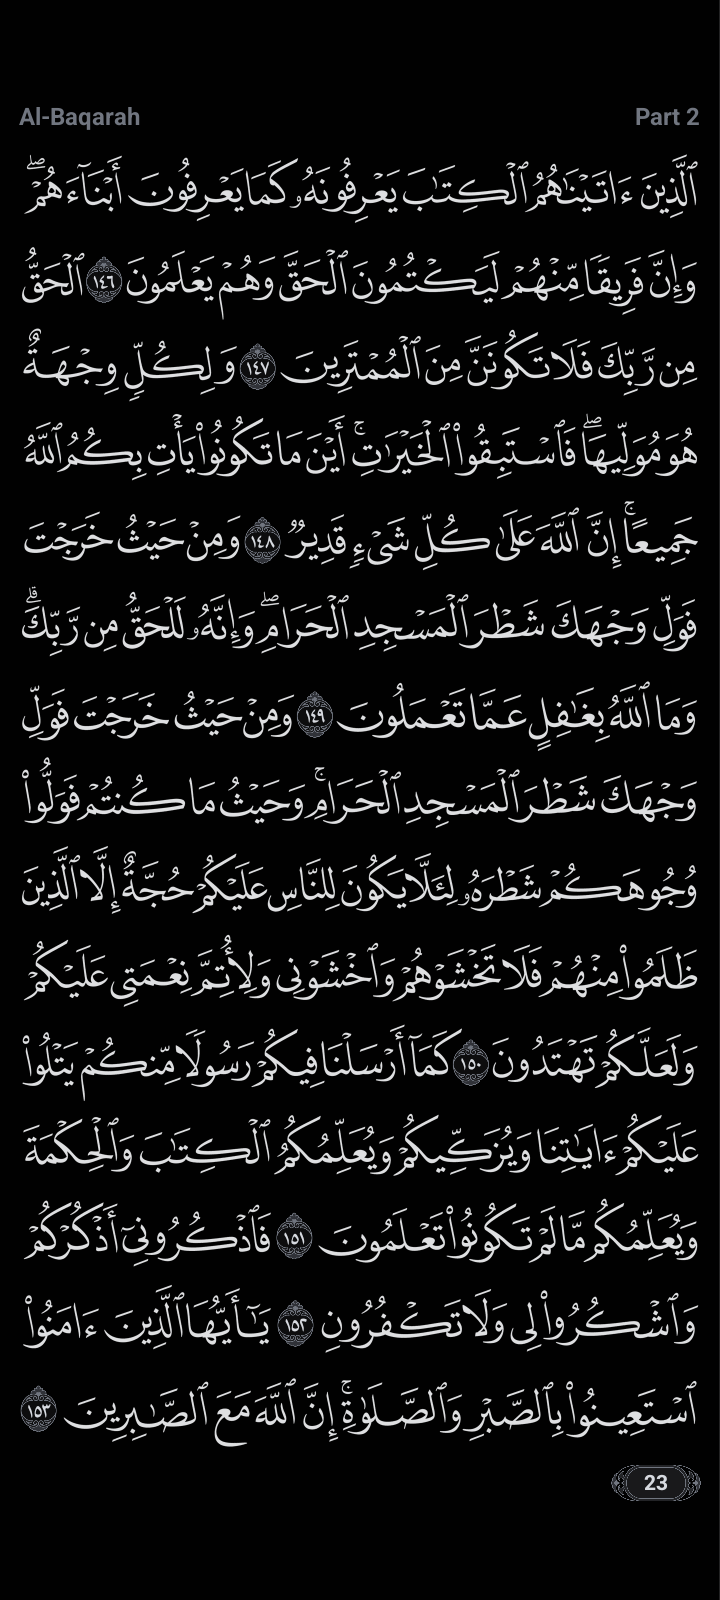 Al-Baqarah Part 2
ٱلَّذِينَ ءَاتَيْنَٰهُمُ ٱلْكِتَٰبَ يَعْرِفُونَهُۥ كَمَا يَعْرِفُونَ أَبْنَآءَهُمْۖ
وَإِنَّ فَرِيقًا مِّنْهُمْ لَيَكْتُمُونَ ٱلْحَقَّ وَهُمْ يَعْلَمُونَ ١٤٦ ٱلْحَقُّ
مِن رَّبِّكَ فَلَا تَكُونَنَّ مِنَ ٱلْمُمْتَرِينَ ١٤٧ وَلِكُلٍّ وِجْهَةٌ
هُوَ مُوَلِّيهَاۖ فَٱسْتَبِقُوا۟ ٱلْخَيْرَٰتِۚ أَيْنَ مَا تَكُونُوا۟ يَأْتِ بِكُمُ ٱللَّهُ
جَمِيعًاۚ إِنَّ ٱللَّهَ عَلَىٰ كُلِّ شَىْءٍ قَدِيرٌ ١٤٨ وَمِنْ حَيْثُ خَرَجْتَ
فَوَلِّ وَجْهَكَ شَطْرَ ٱلْمَسْجِدِ ٱلْحَرَامِۖ وَإِنَّهُۥ لَلْحَقُّ مِن رَّبِّكَۗ
وَمَا ٱللَّهُ بِغَٰفِلٍ عَمَّا تَعْمَلُونَ ١٤٩ وَمِنْ حَيْثُ خَرَجْتَ فَوَلِّ
وَجْهَكَ شَطْرَ ٱلْمَسْجِدِ ٱلْحَرَامِۚ وَحَيْثُ مَا كُنتُمْ فَوَلُّوا۟
وُجُوهَكُمْ شَطْرَهُۥ لِئَلَّا يَكُونَ لِلنَّاسِ عَلَيْكُمْ حُجَّةٌ إِلَّا ٱلَّذِينَ
ظَلَمُوا۟ مِنْهُمْ فَلَا تَخْشَوْهُمْ وَٱخْشَوْنِى وَلِأُتِمَّ نِعْمَتِى عَلَيْكُمْ
وَلَعَلَّكُمْ تَهْتَدُونَ ١٥٠ كَمَآ أَرْسَلْنَا فِيكُمْ رَسُولًا مِّنكُمْ يَتْلُوا۟
عَلَيْكُمْ ءَايَٰتِنَا وَيُزَكِّيكُمْ وَيُعَلِّمُكُمُ ٱلْكِتَٰبَ وَٱلْحِكْمَةَ
وَيُعَلِّمُكُم مَّا لَمْ تَكُونُوا۟ تَعْلَمُونَ ١٥١ فَٱذْكُرُونِىٓ أَذْكُرْكُمْ
وَٱشْكُرُوا۟ لِى وَلَا تَكْفُرُونِ ١٥٢ يَٰٓأَيُّهَا ٱلَّذِينَ ءَامَنُوا۟
ٱسْتَعِينُوا۟ بِٱلصَّبْرِ وَٱلصَّلَوٰةِۚ إِنَّ ٱللَّهَ مَعَ ٱلصَّٰبِرِينَ ١٥٣
23